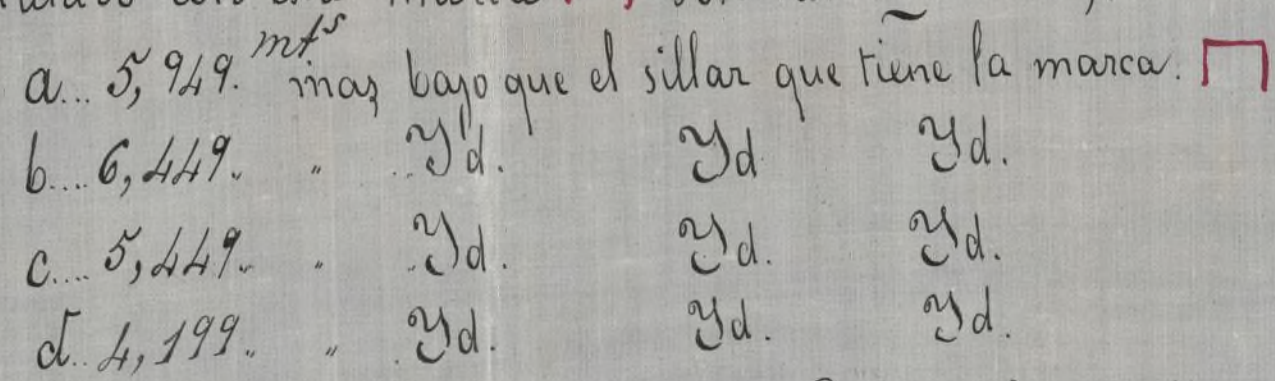 a... 5,949. mts mas bajo que el sillar que tiene la marca.
b.... 6,449. " Yd. Yd Yd.
c.... 5,449. " Yd. Yd. Yd.
d.. 4,199. " Yd. Yd. Yd.